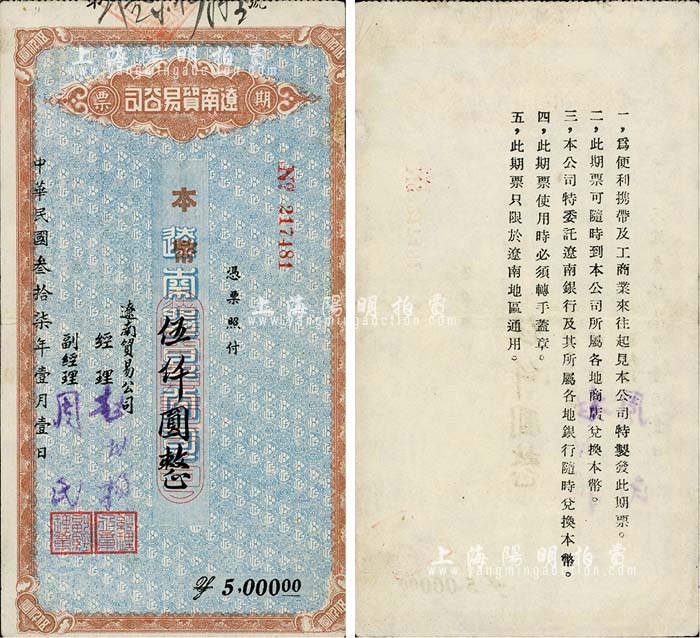 號
遼南貿易公司
期 票
No 217481
憑票照付
本幣
伍仟圓整
遼南貿易公司
經理
副經理
周
中華民國叁拾柒年壹月壹日
5,00000
上海陽明拍賣
www.yangmingauction.com
一，爲便利携帶及工商業來往起見本公司特製發此期票。
二，此期票可隨時到本公司所屬各地商店兌換本幣。
三，本公司特委託遼南銀行及其所屬各地銀行隨時兌換本幣。
四，此期票使用時必須轉手蓋章。
五，此期票只限於遼南地區通用。
上海陽明拍賣
www.yangmingauction.com